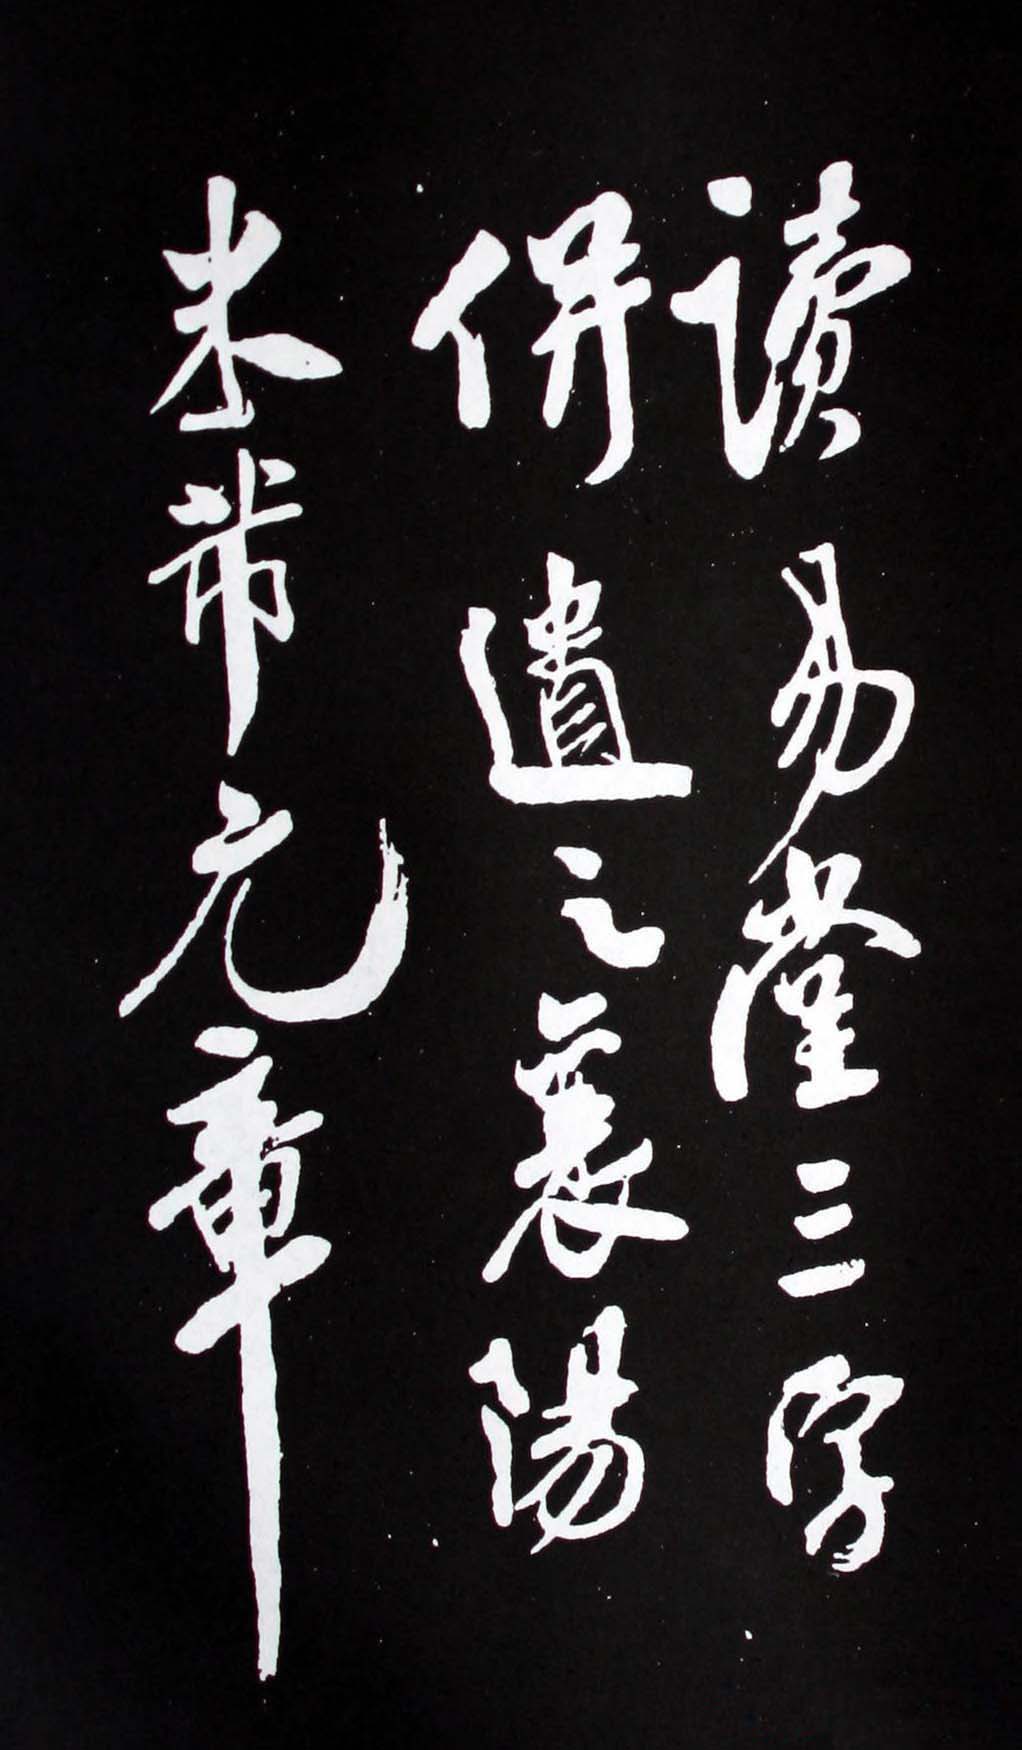 讀易堂三字
併遺之襄陽
米芾元章